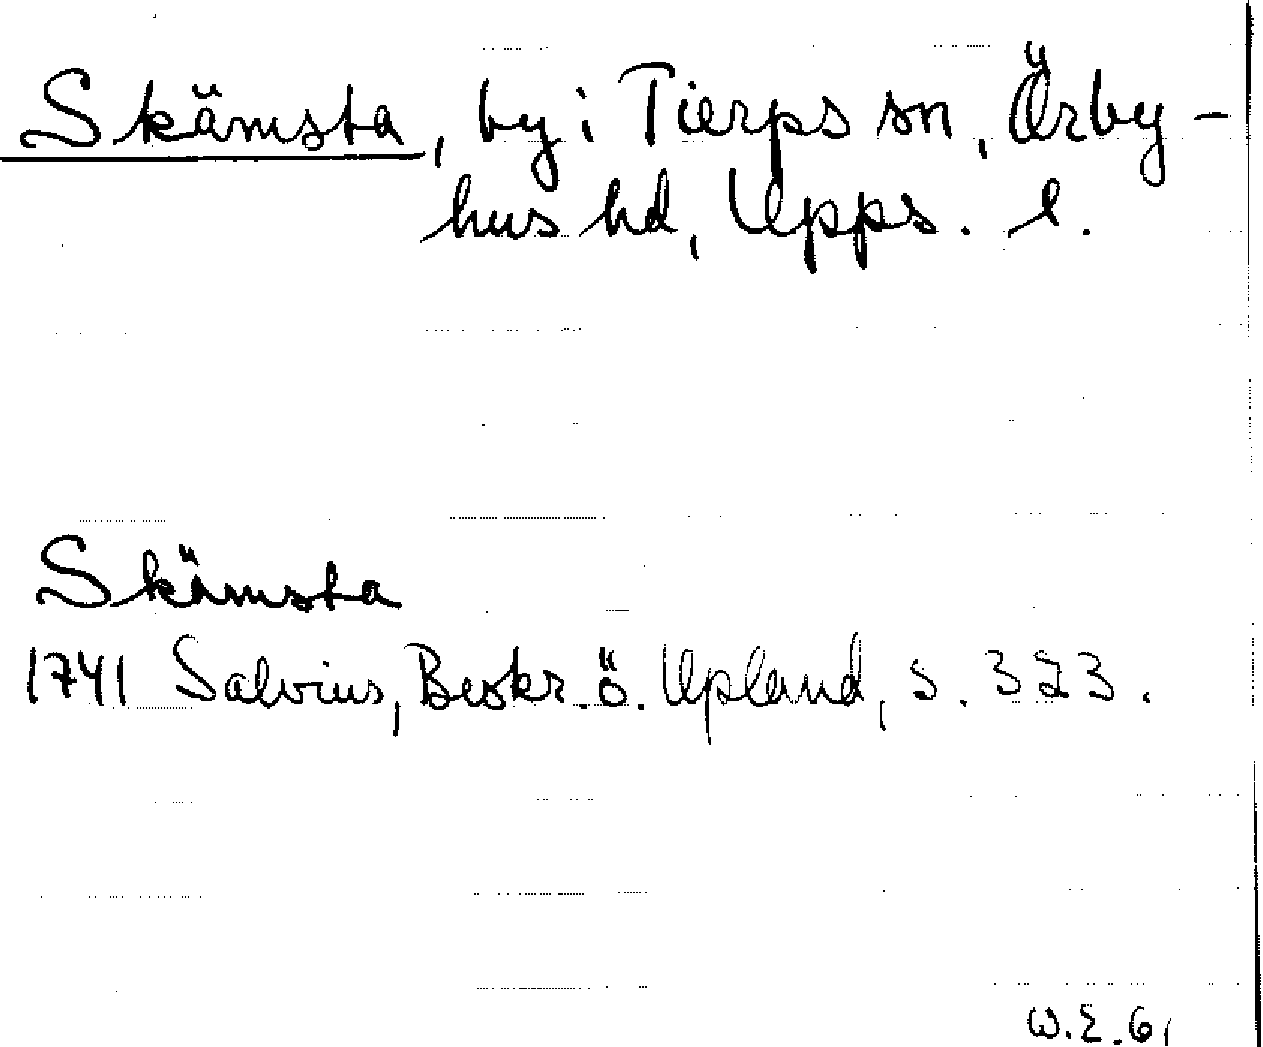 Skämsta, by i Tierps sn, Örby-
hus hd, Upps. l.
Skämsta
1741 Salvius, Beskr. ö. Upland, s. 323.
W.E. 61